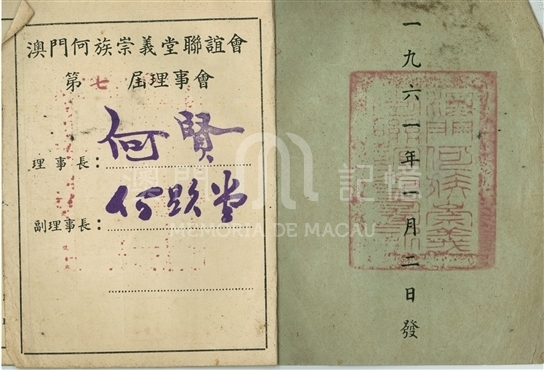 澳門何族崇義堂聯誼會
第七届理事會
理事長：何賢
副理事長：
一九六一年一月二日發
澳門記憶
MEMÓRIA DE MACAU